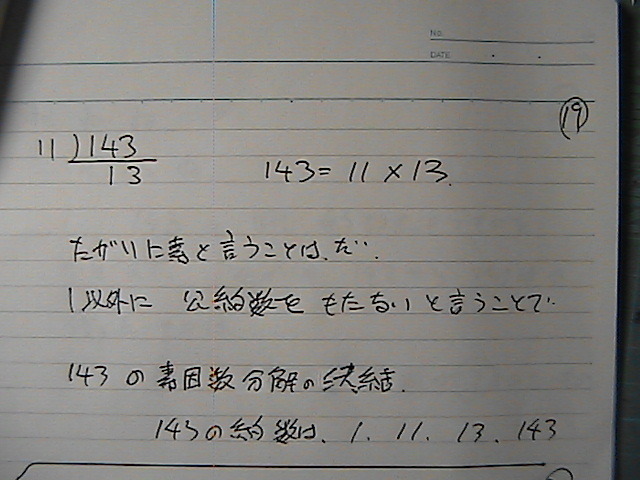 NO.
DATE
⑲
11)143
13
143 = 11 × 13.
たがいに素と言うことは、だ‥
1以外に 公約数を もたないと言うことで‥
143の素因数分解の結.
143の約数は、1. 11. 13. 143